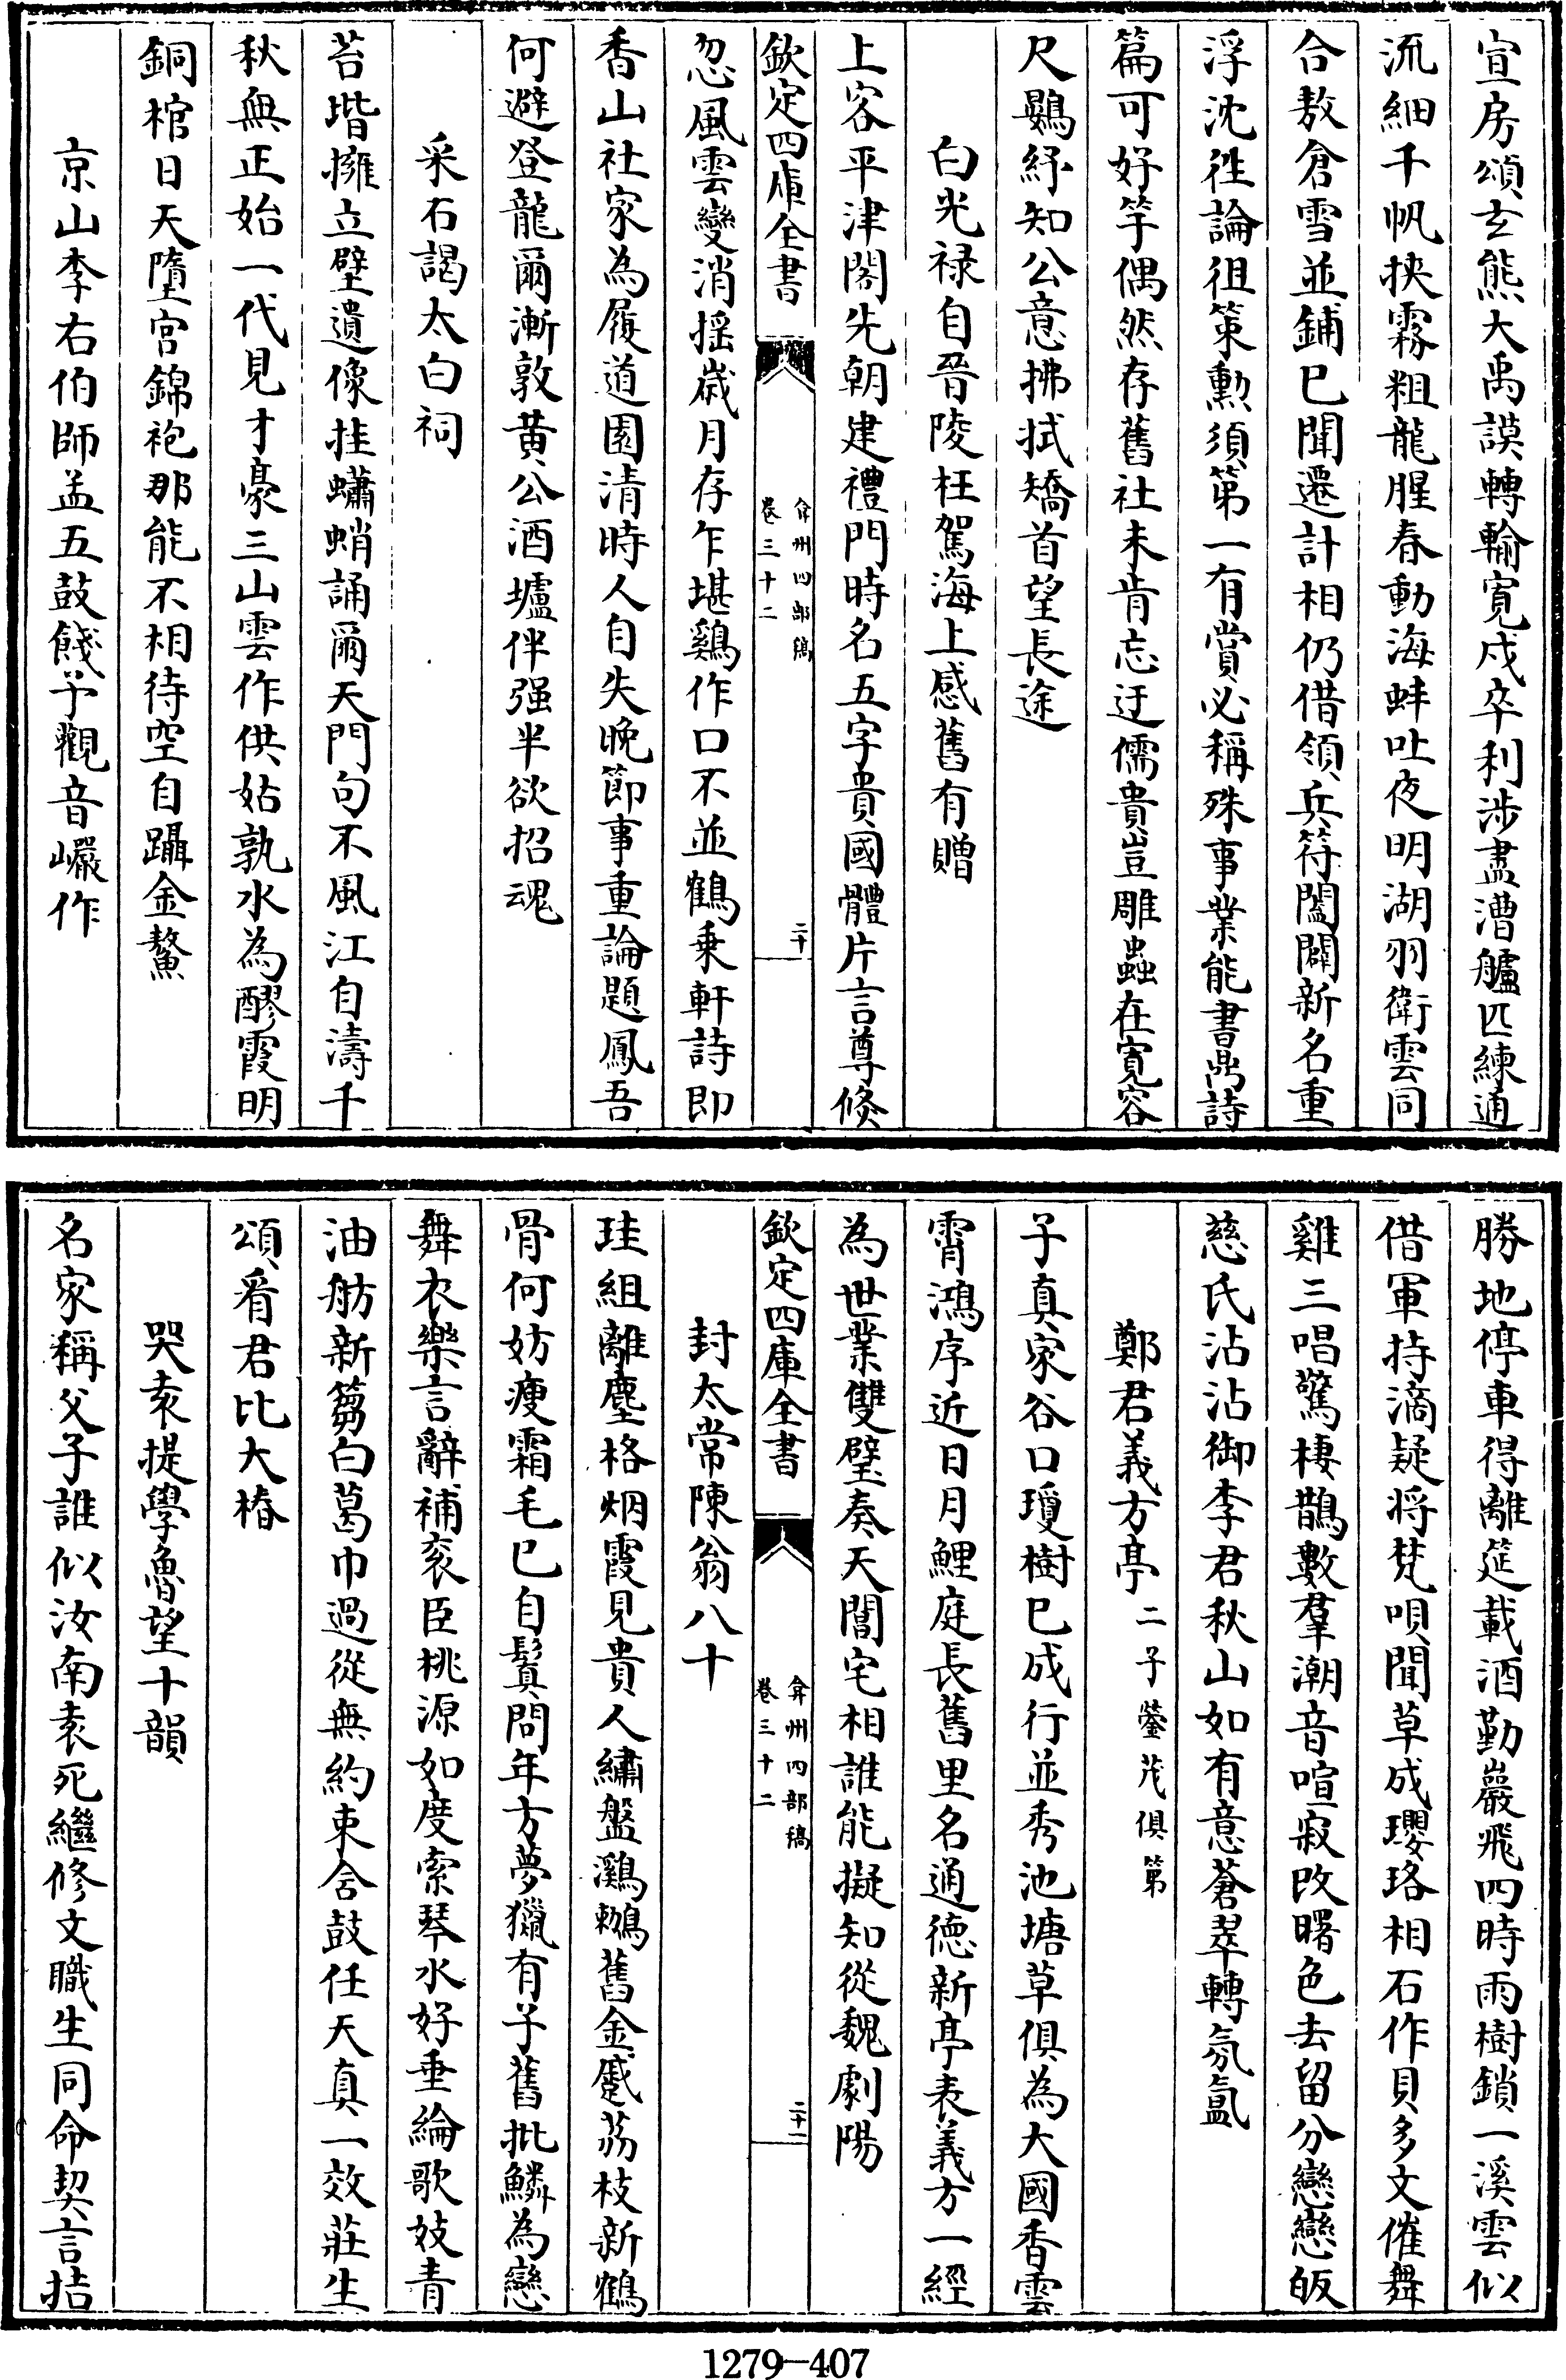 宣房頌玄熊大禹謨轉輸寛戍卒利渉盡漕艫匹練通
流細千帆挾霧粗龍腥春動海蚌吐夜明湖羽衛雲同
合敖倉雪並鋪已聞遷計相仍借領兵符闔闢新名重
浮沈徃論徂策勲須第一有賞必稱殊事業能書鼎詩
篇可好竽偶然存舊社未肯忘迂儒貴豈雕蟲在寛容
尺鷃紓知公意拂拭矯首望長途
白光禄自晉陵枉駕海上感舊有贈
上客平津閣先朝建禮門時名五字貴國體片言尊倐
欽定四庫全書
弇州四部稿
卷三十二
二十
忽風雲變消揺歳月存乍堪鷄作口不並鶴乗軒詩即
香山社家為履道園清時人自失晩節事重論題鳳吾
何避登龍爾漸敦黄公酒壚伴强半欲招魂
采石謁太白祠
苔堦擁立壁遺像挂蠨蛸誦爾天門句不風江自濤千
秋無正始一代見才豪三山雲作供姑孰水為醪霞明
銅棺日天墮宫錦袍那能不相待空自躡金鰲
京山李右伯師孟五鼓餞予觀音巖作
勝地停車得離筵載酒勤巖飛四時雨樹鎖一溪雲似
借軍持滴疑将梵唄聞草成瓔珞相石作貝多文催舞
雞三唱驚棲鵲數羣潮音喧寂改曙色去留分戀戀皈
慈氏沾沾御李君秋山如有意蒼翠轉氛氲
鄭君義方亭二子鎣茂俱第
子真家谷口瓊樹已成行並秀池塘草俱為大國香雲
霄鴻序近日月鯉庭長舊里名通德新亭表義方一經
為世業雙璧奏天閶宅相誰能擬知從魏劇陽
欽定四庫全書
弇州四部稿
卷三十二
二十一
封太常陳翁八十
珪組離塵格烟霞見貴人繡盤鸂鶒舊金蹙荔枝新鶴
骨何妨痩霜毛已自鬒問年方夢獵有子舊批鱗為戀
舞衣樂言辭補衮臣桃源如度索琴水好垂綸歌妓青
油舫新蒭白葛巾過從無約束舍鼓任天真一效莊生
頌看君比大椿
哭袁提學魯望十韻
名家稱父子誰似汝南袁死繼修文職生同命契言拮
1279—407